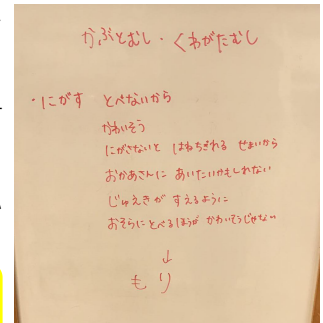 かぶとむし・くわがたむし
・にがす とべないから
かわいそう
にがさないと はねちぎれる せまいから
おかあさんに あいたいかもしれない
じゅえきが すえるように
おそらにとべるほうが かわいそうじゃない
↓
もり